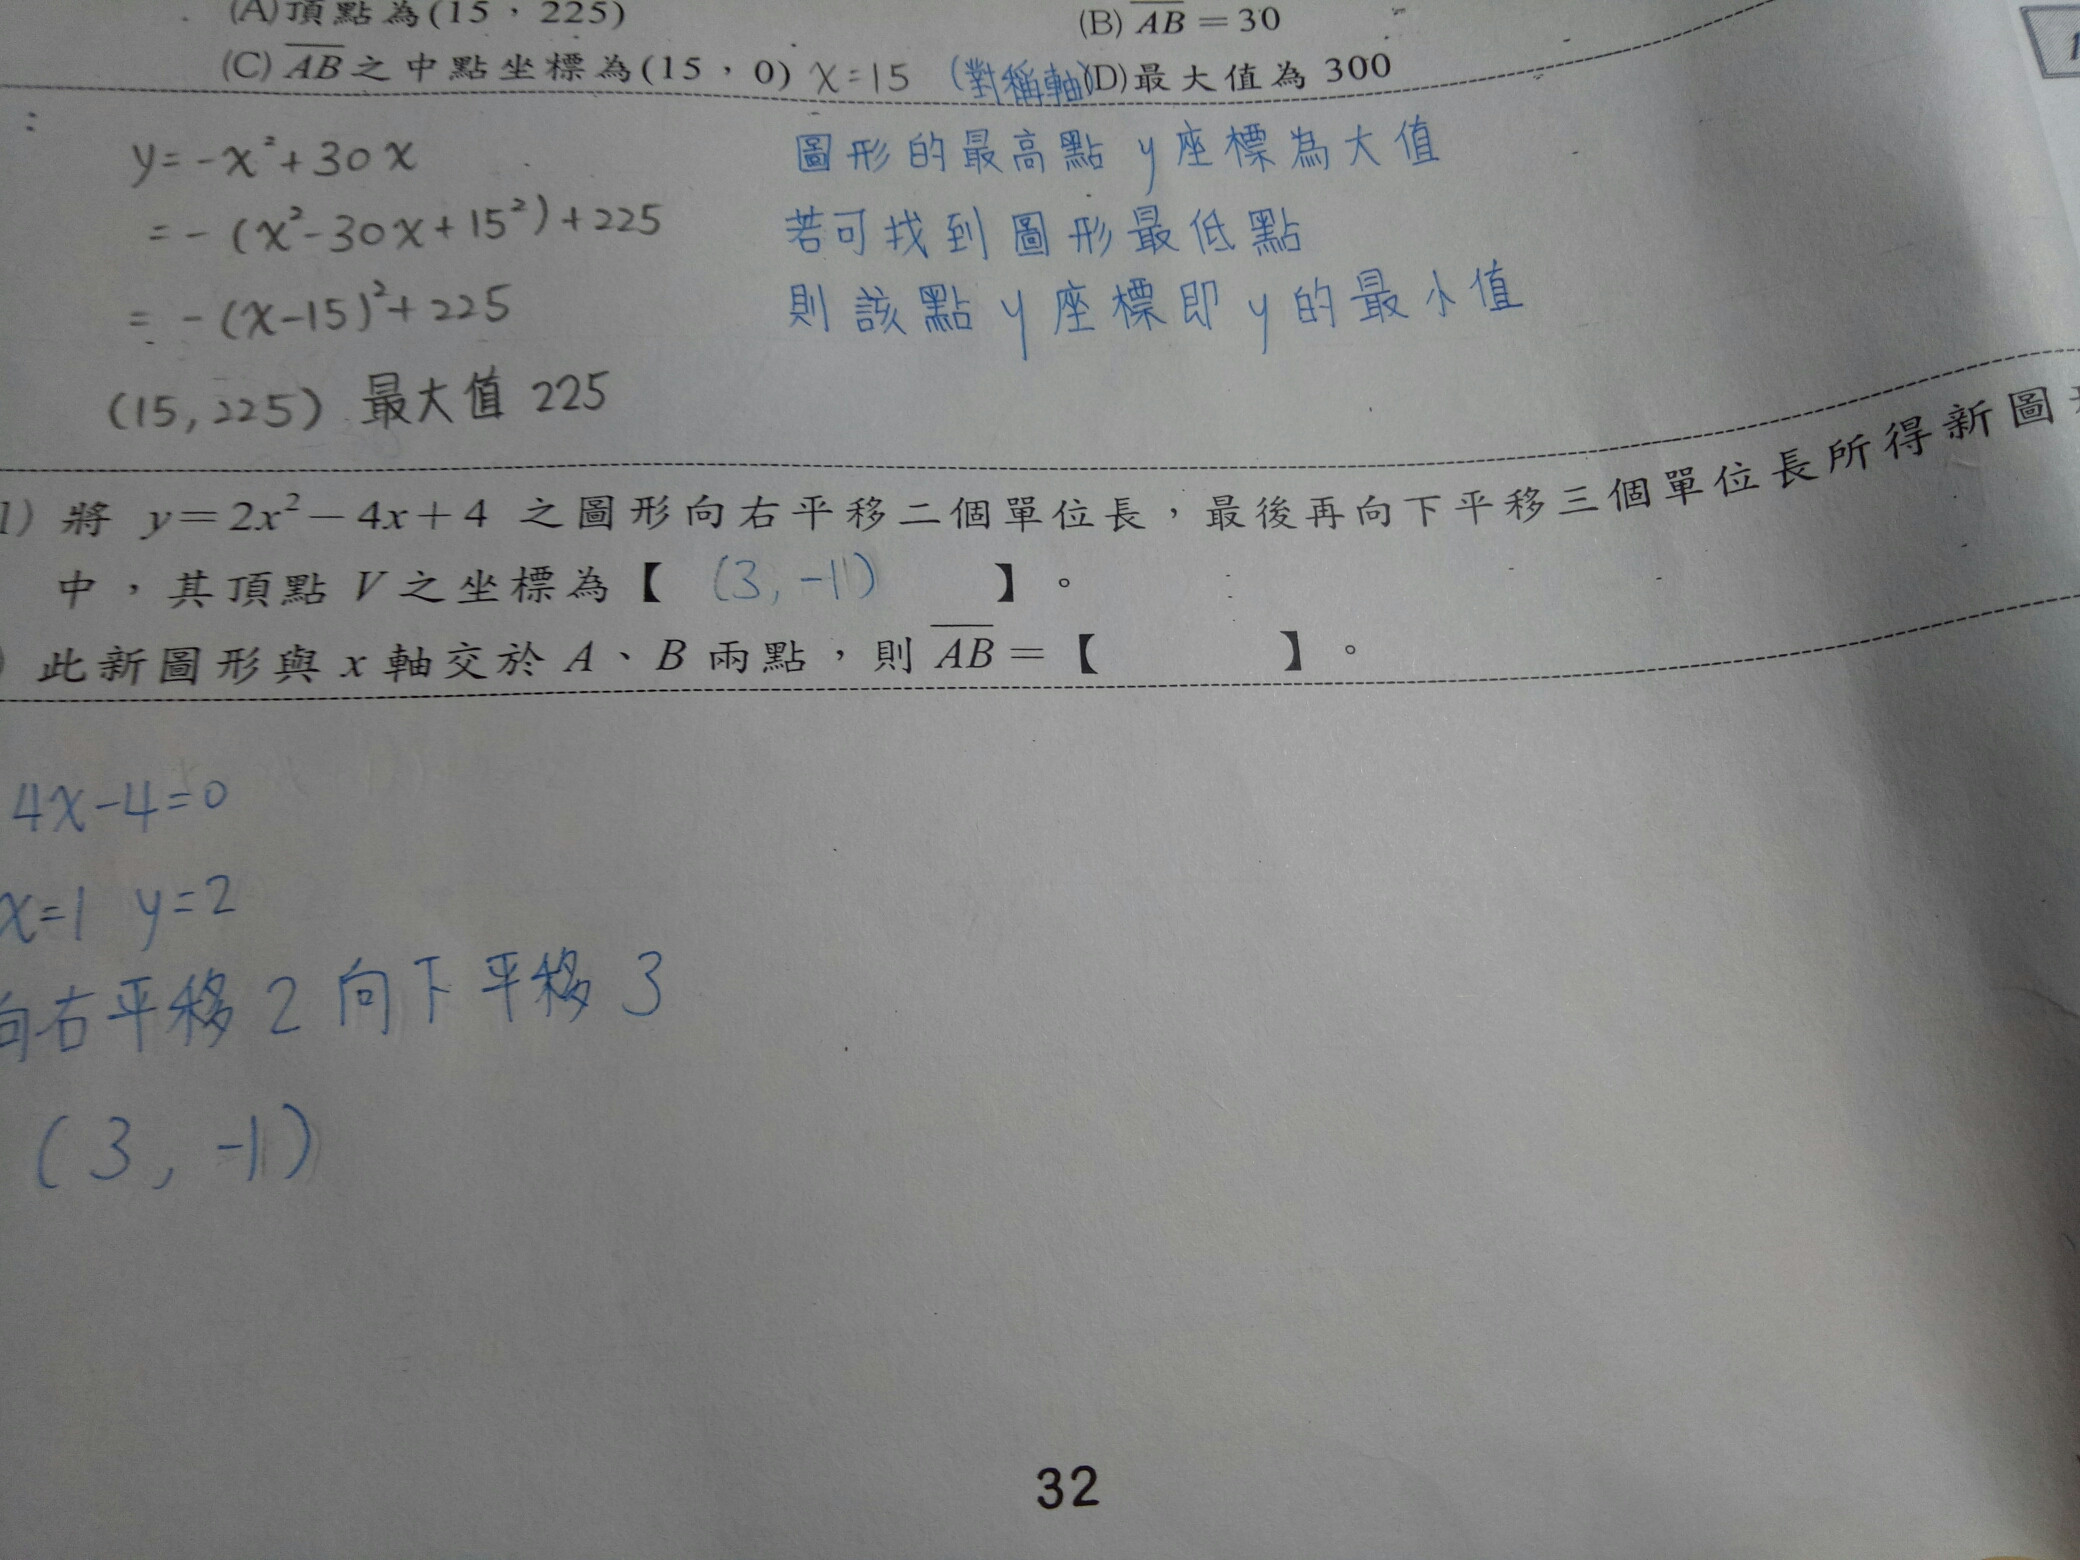 (A)頂點為(15，225) (B) AB＝30
(C) AB之中點坐標為(15，0) x=15 (對稱軸) (D)最大值為 300
:
y=-x²+30x 圖形的最高點 y座標為大值
=-(x²-30x+15²)+225 若可找到圖形最低點
=-(x-15)²+225 則該點 y座標即 y的最小值
(15,225) 最大值 225
1) 將 y＝2x²－4x＋4 之圖形向右平移二個單位長，最後再向下平移三個單位長所得新圖
中，其頂點 V之坐標為【 (3,-1) 】。
) 此新圖形與 x 軸交於 A、B 兩點，則 AB＝【 】。
4x-4=0
x=1 y=2
向右平移 2 向下平移 3
(3,-1)
32